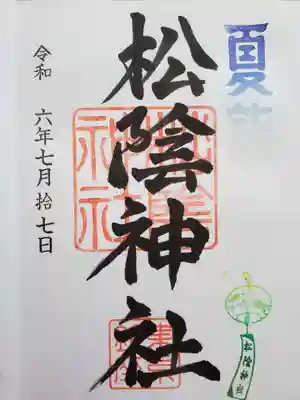 夏詣
松陰神社
令和 六年七月拾七日
松陰神社